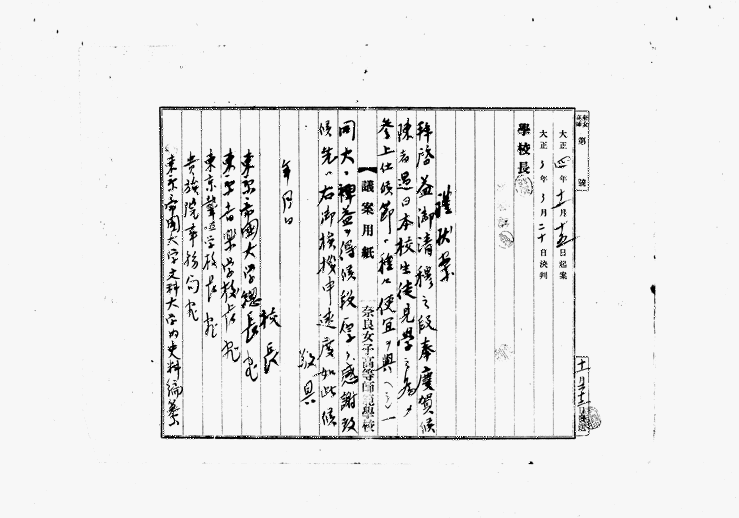 第 號
大正四年十一月十五日起案
大正 年 月二十日決判
學校長
禮状案
拝啓益御清穆之段奉慶賀候
陳者過日本校生徒見学之為メ
参上仕候節ハ種々便宜ヲ與ヘ
同大ニ裨益ヲ得候段厚ク感謝致
候先ハ右御挨拶申述度如此候
敬具
年月日
校長
東京帝國大学総長宛
東京音樂学校長宛
東京聾唖学校長宛
貴族院事務局宛
東京帝國大学文科大学内史料編纂
議案用紙
奈良女子高等師範學校